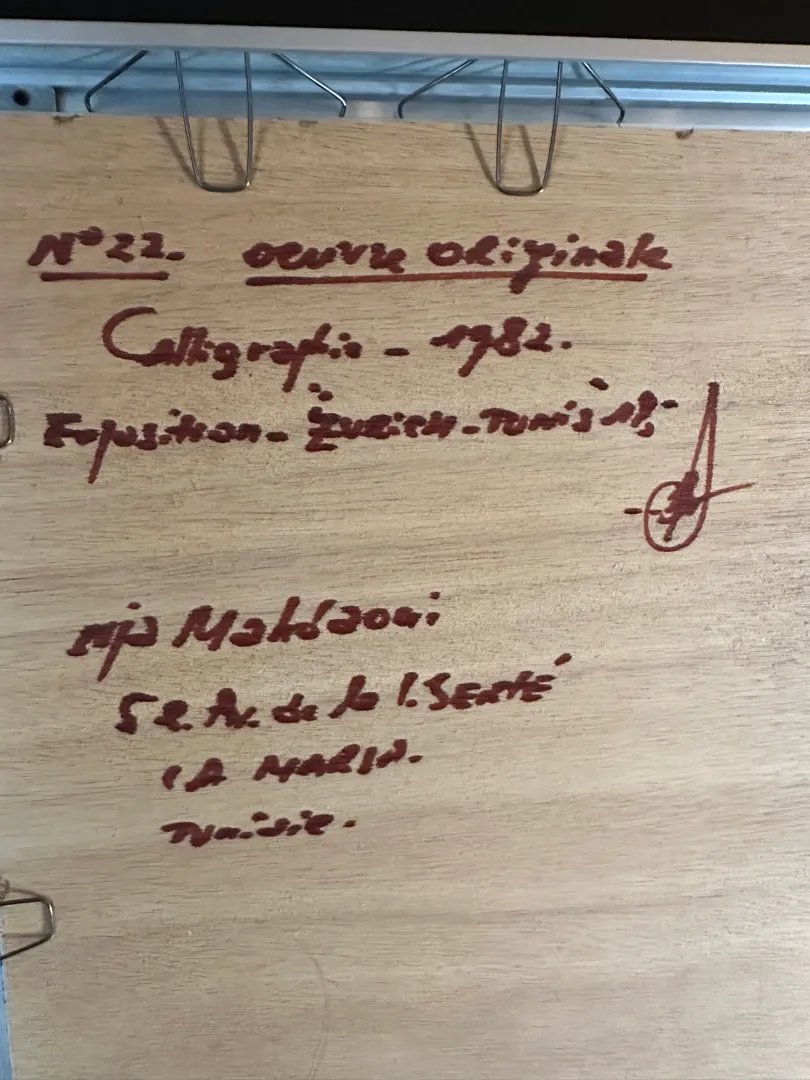 N° 22. oeuvre originale
Calligraphie - 1982.
Exposition - Zurich - Tunis
nja Mahdaoui
Av. de la
LA MARSA.
Tunisie.